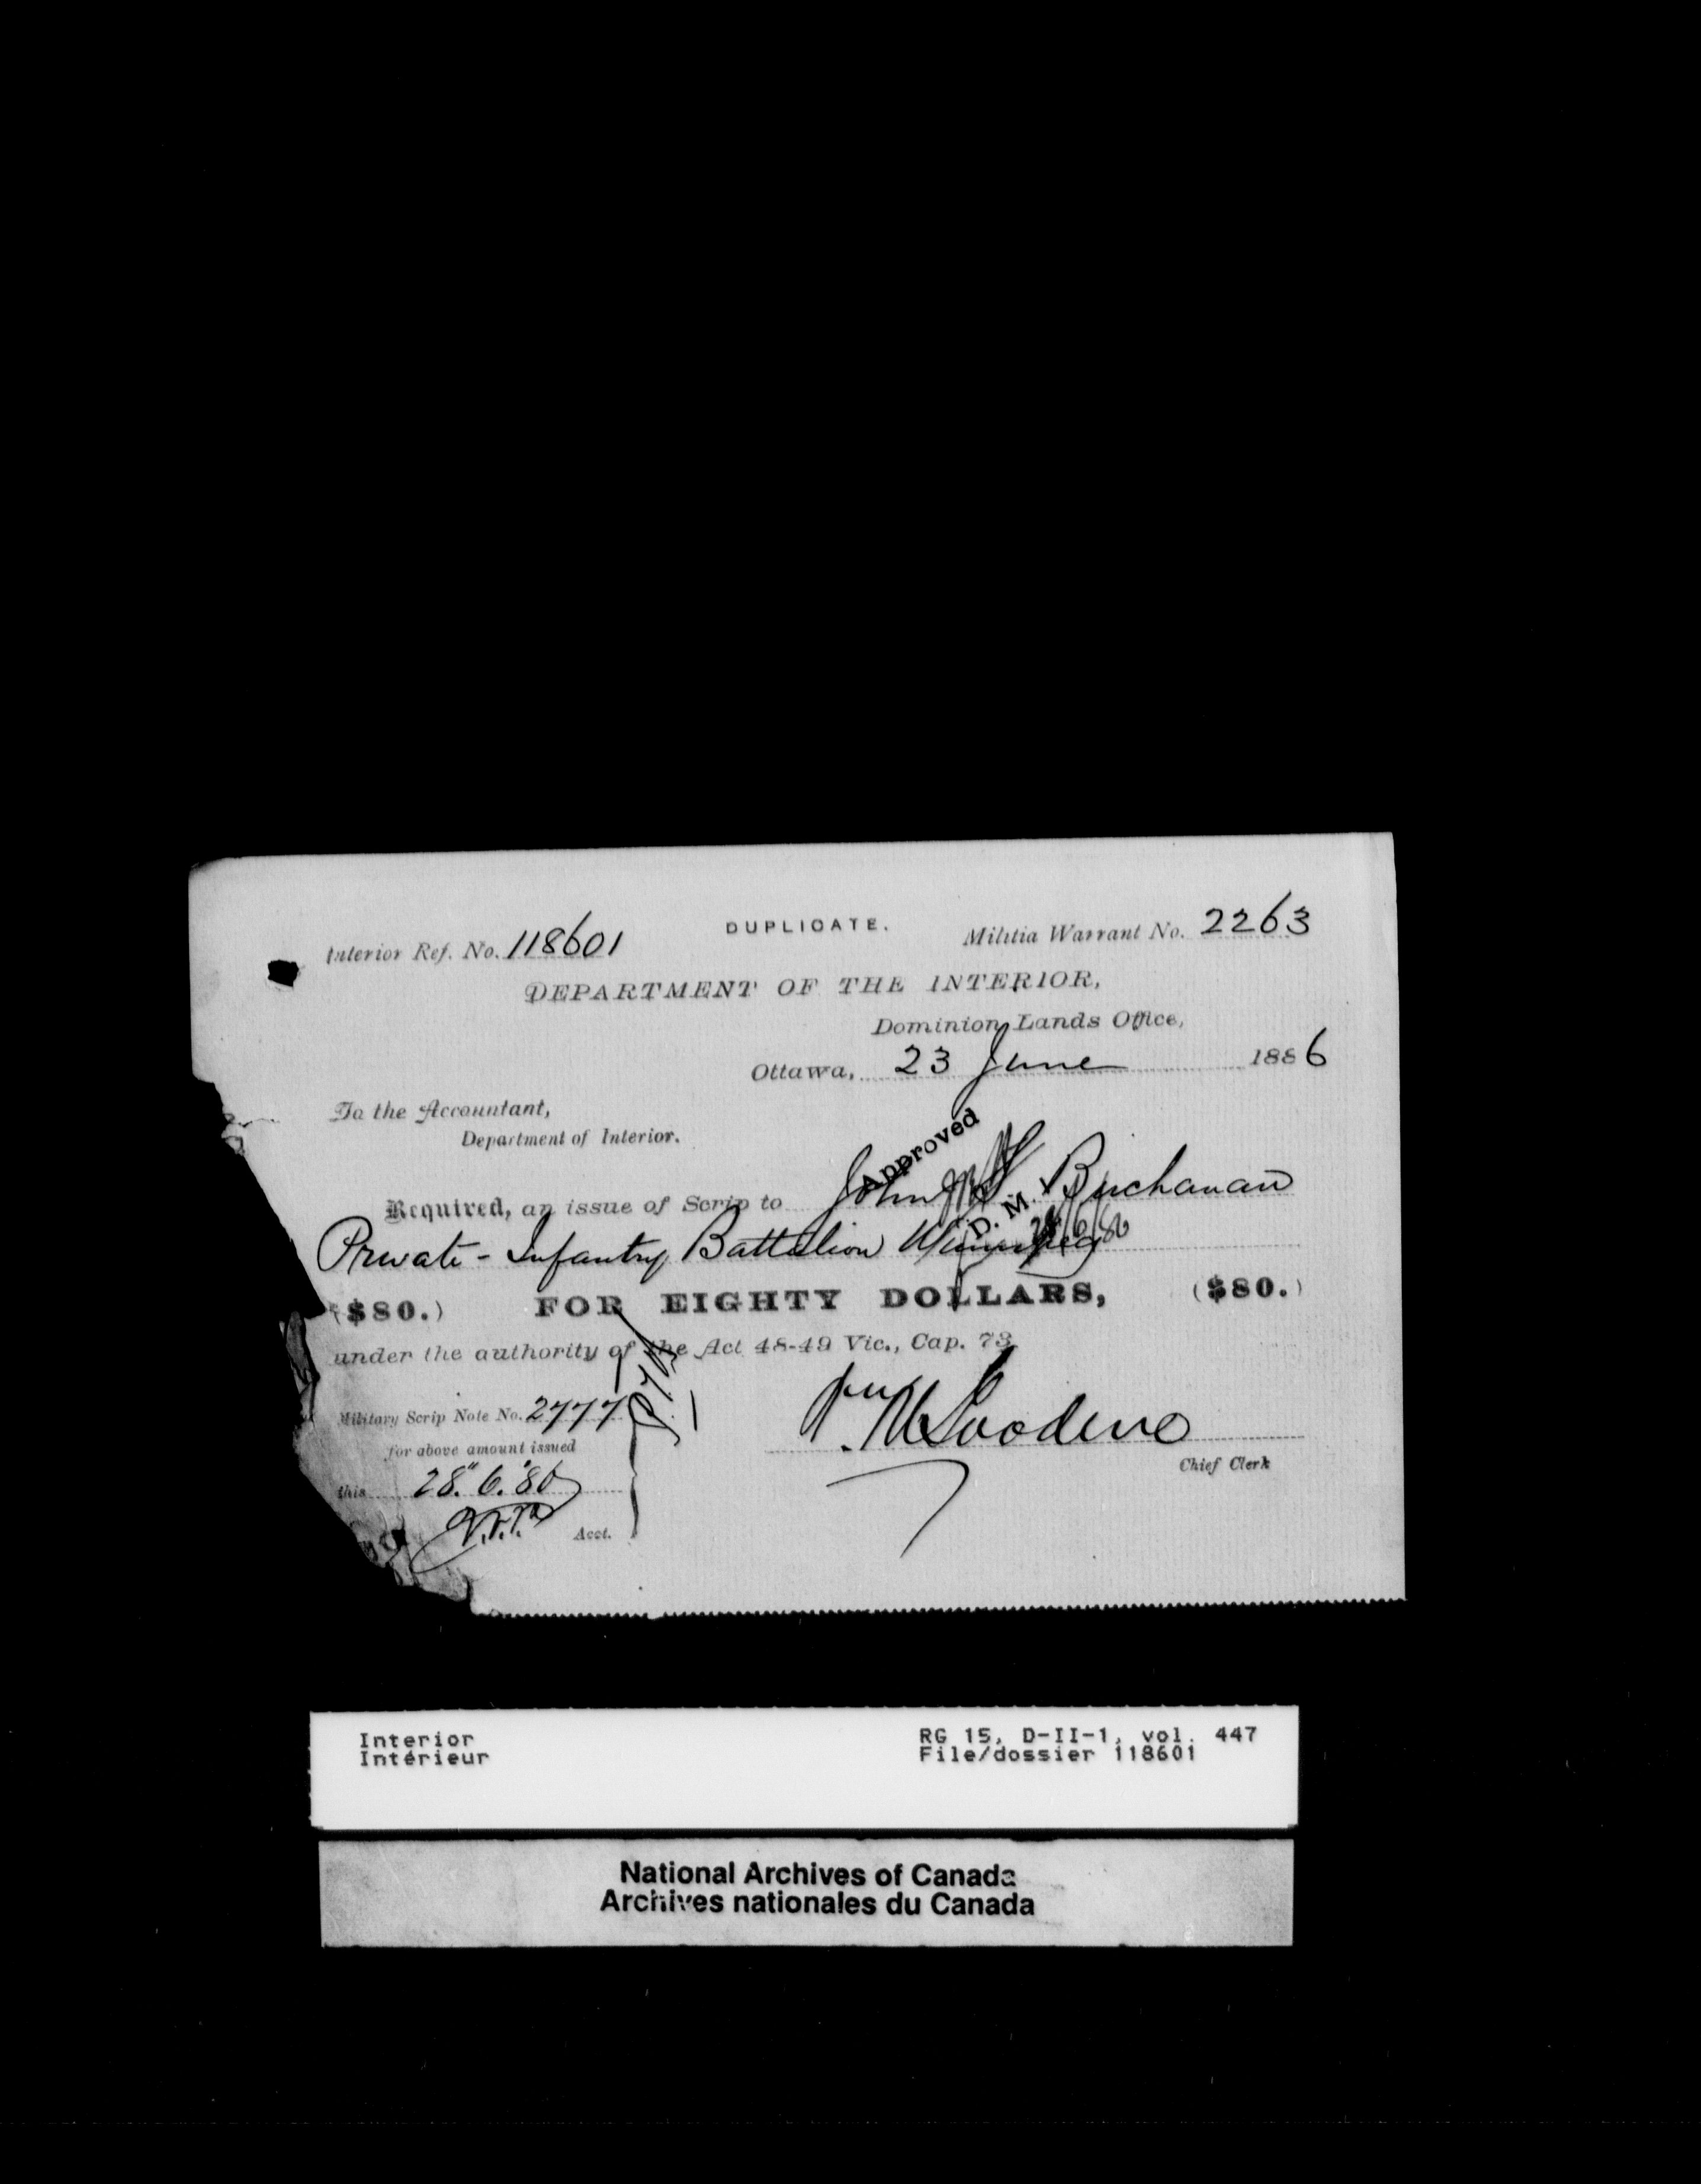 DUPLICATE.
Interior Ref. No. 118601
Militia Warrant No. 2263
DEPARTMENT OF THE INTERIOR,
Dominion Lands Office,
Ottawa, 23 June 1886
To the Accountant,
Department of Interior.
Approved
Required, an issue of Scrip to John Buchanan
D. M.
Private - Infantry Battalion Winnipeg
($80.) FOR EIGHTY DOLLARS, ($80.)
under the authority of the Act 48-49 Vic., Cap. 73
Military Scrip Note No. 2777
for above amount issued
this 28. 6. 86
Acct.
Chief Clerk
Interior
Intérieur
RG 15, D-II-1, vol. 447
File/dossier 118601
National Archives of Canada
Archives nationales du Canada